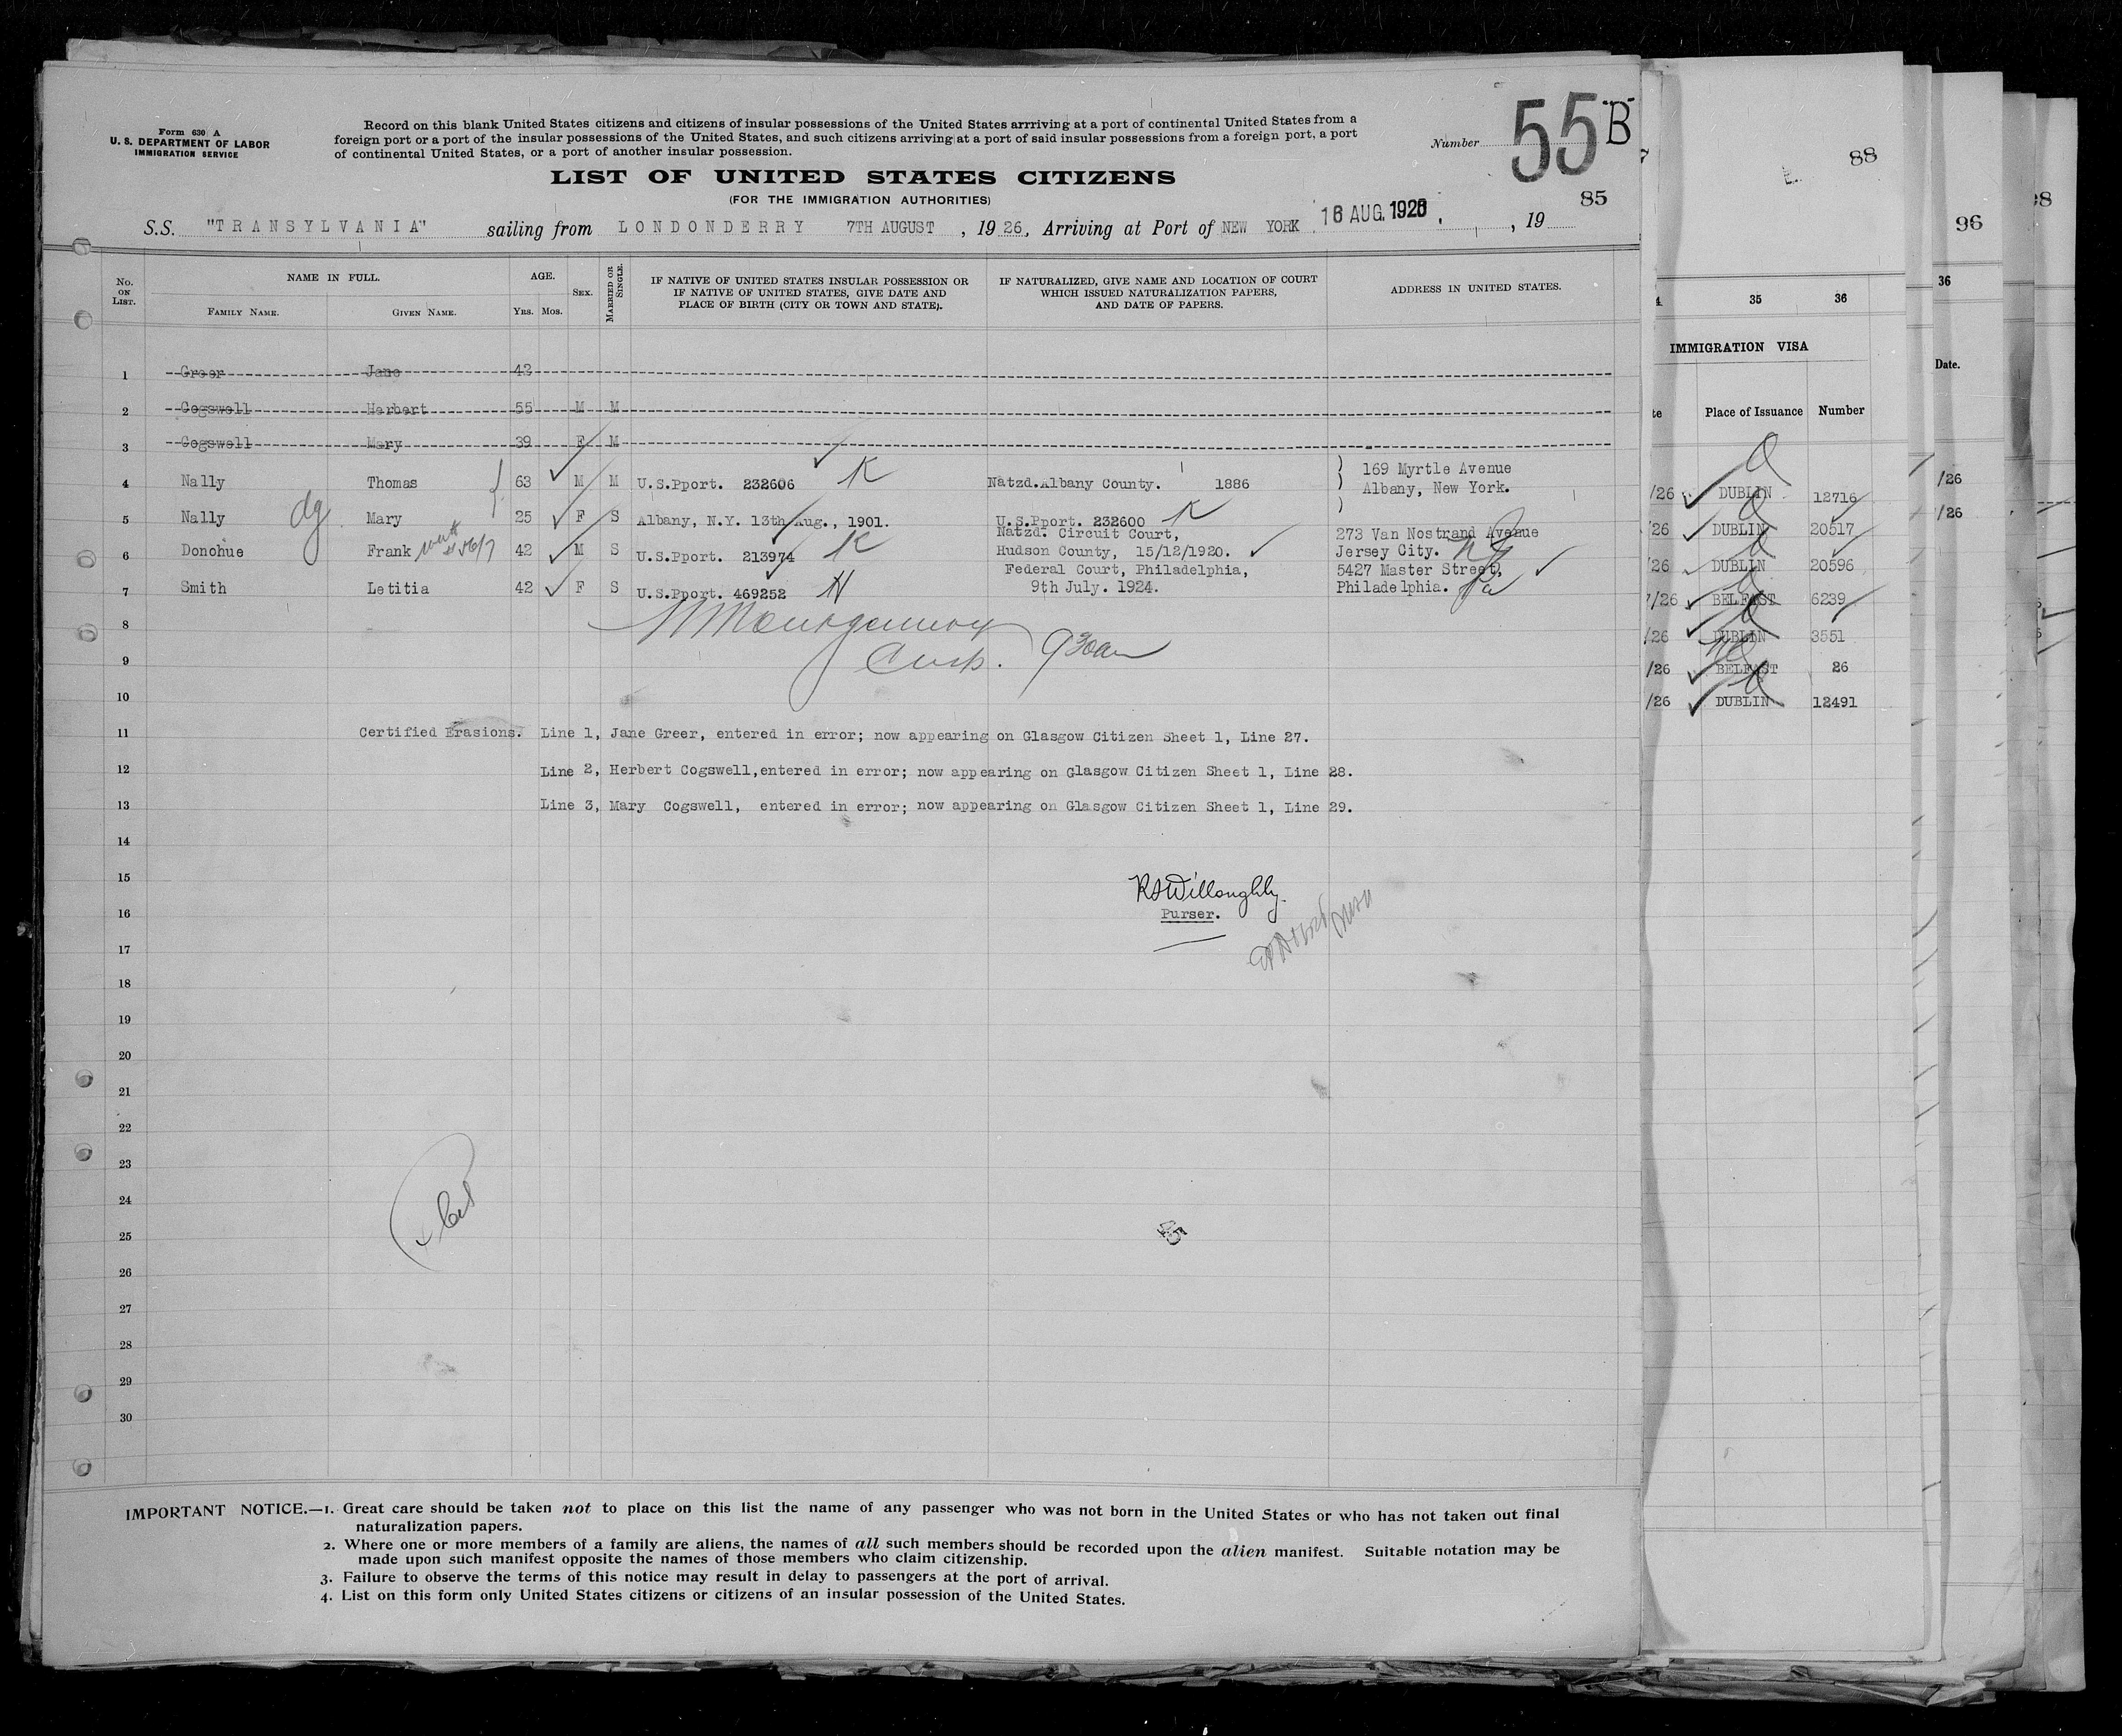 Form 630 A
U. S. DEPARTMENT OF LABOR
IMMIGRATION SERVICE
Record on this blank United States citizens and citizens of insular possessions of the United States arrriving at a port of continental United States from a
foreign port or a port of the insular possessions of the United States, and such citizens arriving at a port of said insular possessions from a foreign port, a port
of continental United States, or a port of another insular possession.
Number 55 "B"
LIST OF UNITED STATES CITIZENS
(FOR THE IMMIGRATION AUTHORITIES)
85
S.S. "TRANSYLVANIA" sailing from LONDONDERRY 7TH AUGUST, 1926, Arriving at Port of NEW YORK 16 AUG. 1926, , 19
No. ON LIST.
NAME IN FULL.
FAMILY NAME.
GIVEN NAME.
AGE.
YRS. MOS.
SEX.
MARRIED OR SINGLE.
IF NATIVE OF UNITED STATES INSULAR POSSESSION OR
IF NATIVE OF UNITED STATES, GIVE DATE AND
PLACE OF BIRTH (CITY OR TOWN AND STATE).
IF NATURALIZED, GIVE NAME AND LOCATION OF COURT
WHICH ISSUED NATURALIZATION PAPERS,
AND DATE OF PAPERS.
ADDRESS IN UNITED STATES.
1 Greer Jane 42
2 Cogswell Herbert 55 M M
3 Cogswell Mary 39 F M
4 Nally Thomas 63 M M U.S.Pport. 232606 K Natzd.Albany County. 1886 169 Myrtle Avenue
Albany, New York.
5 Nally Mary 25 F S Albany, N.Y. 13th Aug., 1901. U.S.Pport. 232600 K
6 Donohue Frank 42 M S U.S.Pport. 213974 K Natzd. Circuit Court,
Hudson County, 15/12/1920. 273 Van Nostrand Avenue
Jersey City. NJ
7 Smith Letitia 42 F S U.S.Pport. 469252 Federal Court, Philadelphia,
9th July. 1924. 5427 Master Street,
Philadelphia. Pa
8
9
10
11 Certified Erasions. Line 1, Jane Greer, entered in error; now appearing on Glasgow Citizen Sheet 1, Line 27.
12 Line 2, Herbert Cogswell,entered in error; now appearing on Glasgow Citizen Sheet 1, Line 28.
13 Line 3, Mary Cogswell, entered in error; now appearing on Glasgow Citizen Sheet 1, Line 29.
14
15 RSWilloughby.
16 Purser.
17
18
19
20
21
22
23
24
25 45
26
27
28
29
30
IMPORTANT NOTICE.—1. Great care should be taken not to place on this list the name of any passenger who was not born in the United States or who has not taken out final
naturalization papers.
2. Where one or more members of a family are aliens, the names of all such members should be recorded upon the alien manifest. Suitable notation may be
made upon such manifest opposite the names of those members who claim citizenship.
3. Failure to observe the terms of this notice may result in delay to passengers at the port of arrival.
4. List on this form only United States citizens or citizens of an insular possession of the United States.
88
35 36
IMMIGRATION VISA
Place of Issuance Number
/26 DUBLIN 12716
/26 DUBLIN 20517
/26 DUBLIN 20596
/26 BELFAST 6239
/26 DUBLIN 3551
/26 BELFAST 26
/26 DUBLIN 12491
96
36
Date.
/26
/26
98